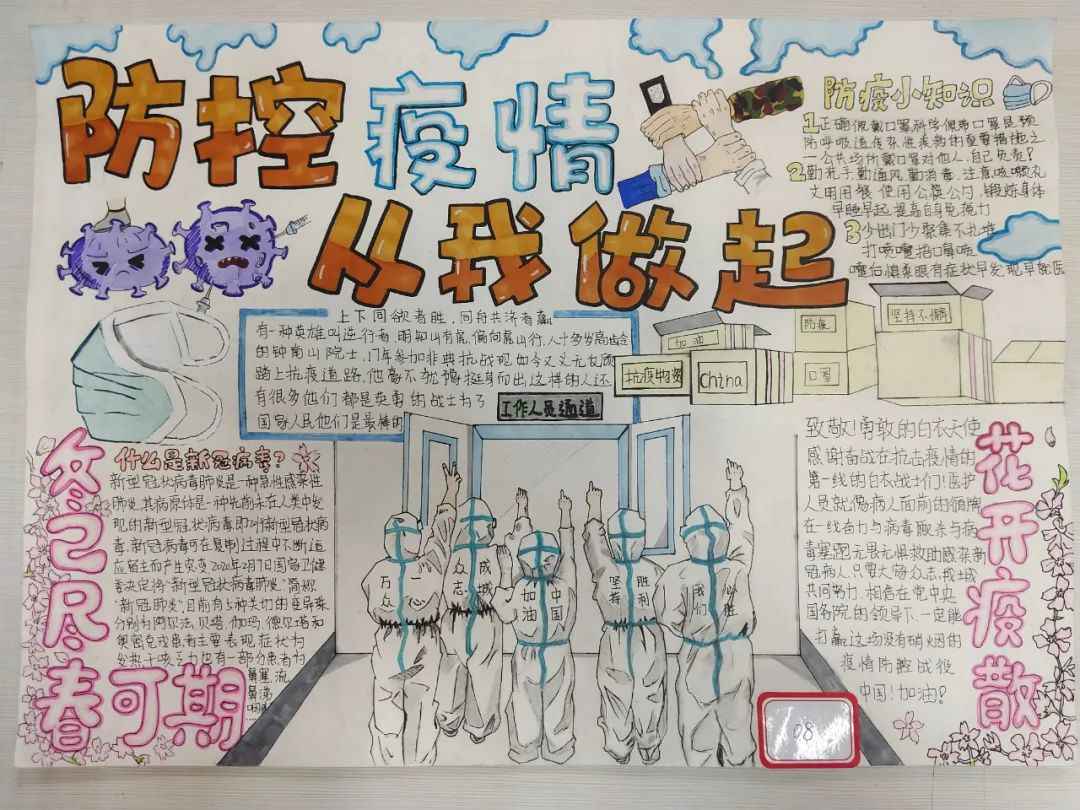 防控疫情
从我做起
防疫小知识
1正确佩戴口罩科学佩戴口罩是预
防呼吸道传染性疾病的重要措施之
一公共场所戴口罩对他人,自己负责?
2勤洗手勤通风勤消毒.注意咳嗽礼
文明用餐 使用公筷公勺,锻炼身体
早睡早起 提高自身免疫力
3少出门少聚集不扎堆
打喷嚏捂口鼻
喷怕 眼有症状早发现早就医
上下同欲者胜,同舟共济者赢
有一种英雄叫逆行者 明知山有虎,偏向虎山行,八十多岁高龄
的钟南山院士,17年参加非典抗战现如今又义无反顾
踏上抗疫道路,他毫不犹豫挺身而出,这样的人还
有很多他们都是英勇的战士为了
国家人民他们是最棒的
加油
防疫
坚持不懈
抗疫物资
China
口罩
工作人员通道
什么是新冠病毒?
新型冠状病毒肺炎是一种急性感染性
肺炎其病原体是一种先前未在人类中发
现的新型冠状病毒即对新型冠状病
毒.新冠病毒可在复制过程中不断适
应宿主而产生突变 2020年2月7日国家卫健
委决定将"新型冠状病毒肺炎"简称
"新冠肺炎"目前有5种关切的变异株
分别为阿尔法,贝塔,伽玛,德尔塔和
奥密克戎患者主要表现症状为
发热干咳乏力也有一部分患者为
鼻塞 流
鼻涕
冬已尽
春可期
万众一心
众志成城
加油中国
坚持胜利
我们必胜
致敬!勇敢的白衣天使
感谢奋战在抗击疫情的
第一线的白衣战士们!医护
人员就像病人面前的盾牌
在一线奋力与病毒厮杀与病
毒 无畏无惧救助感染新
冠病人,只要大家众志成城
共同努力,相信在党中央
国务院的领导下,一定能
打赢这场没有硝烟的
疫情防控战役
中国!加油?
花开疫散
08